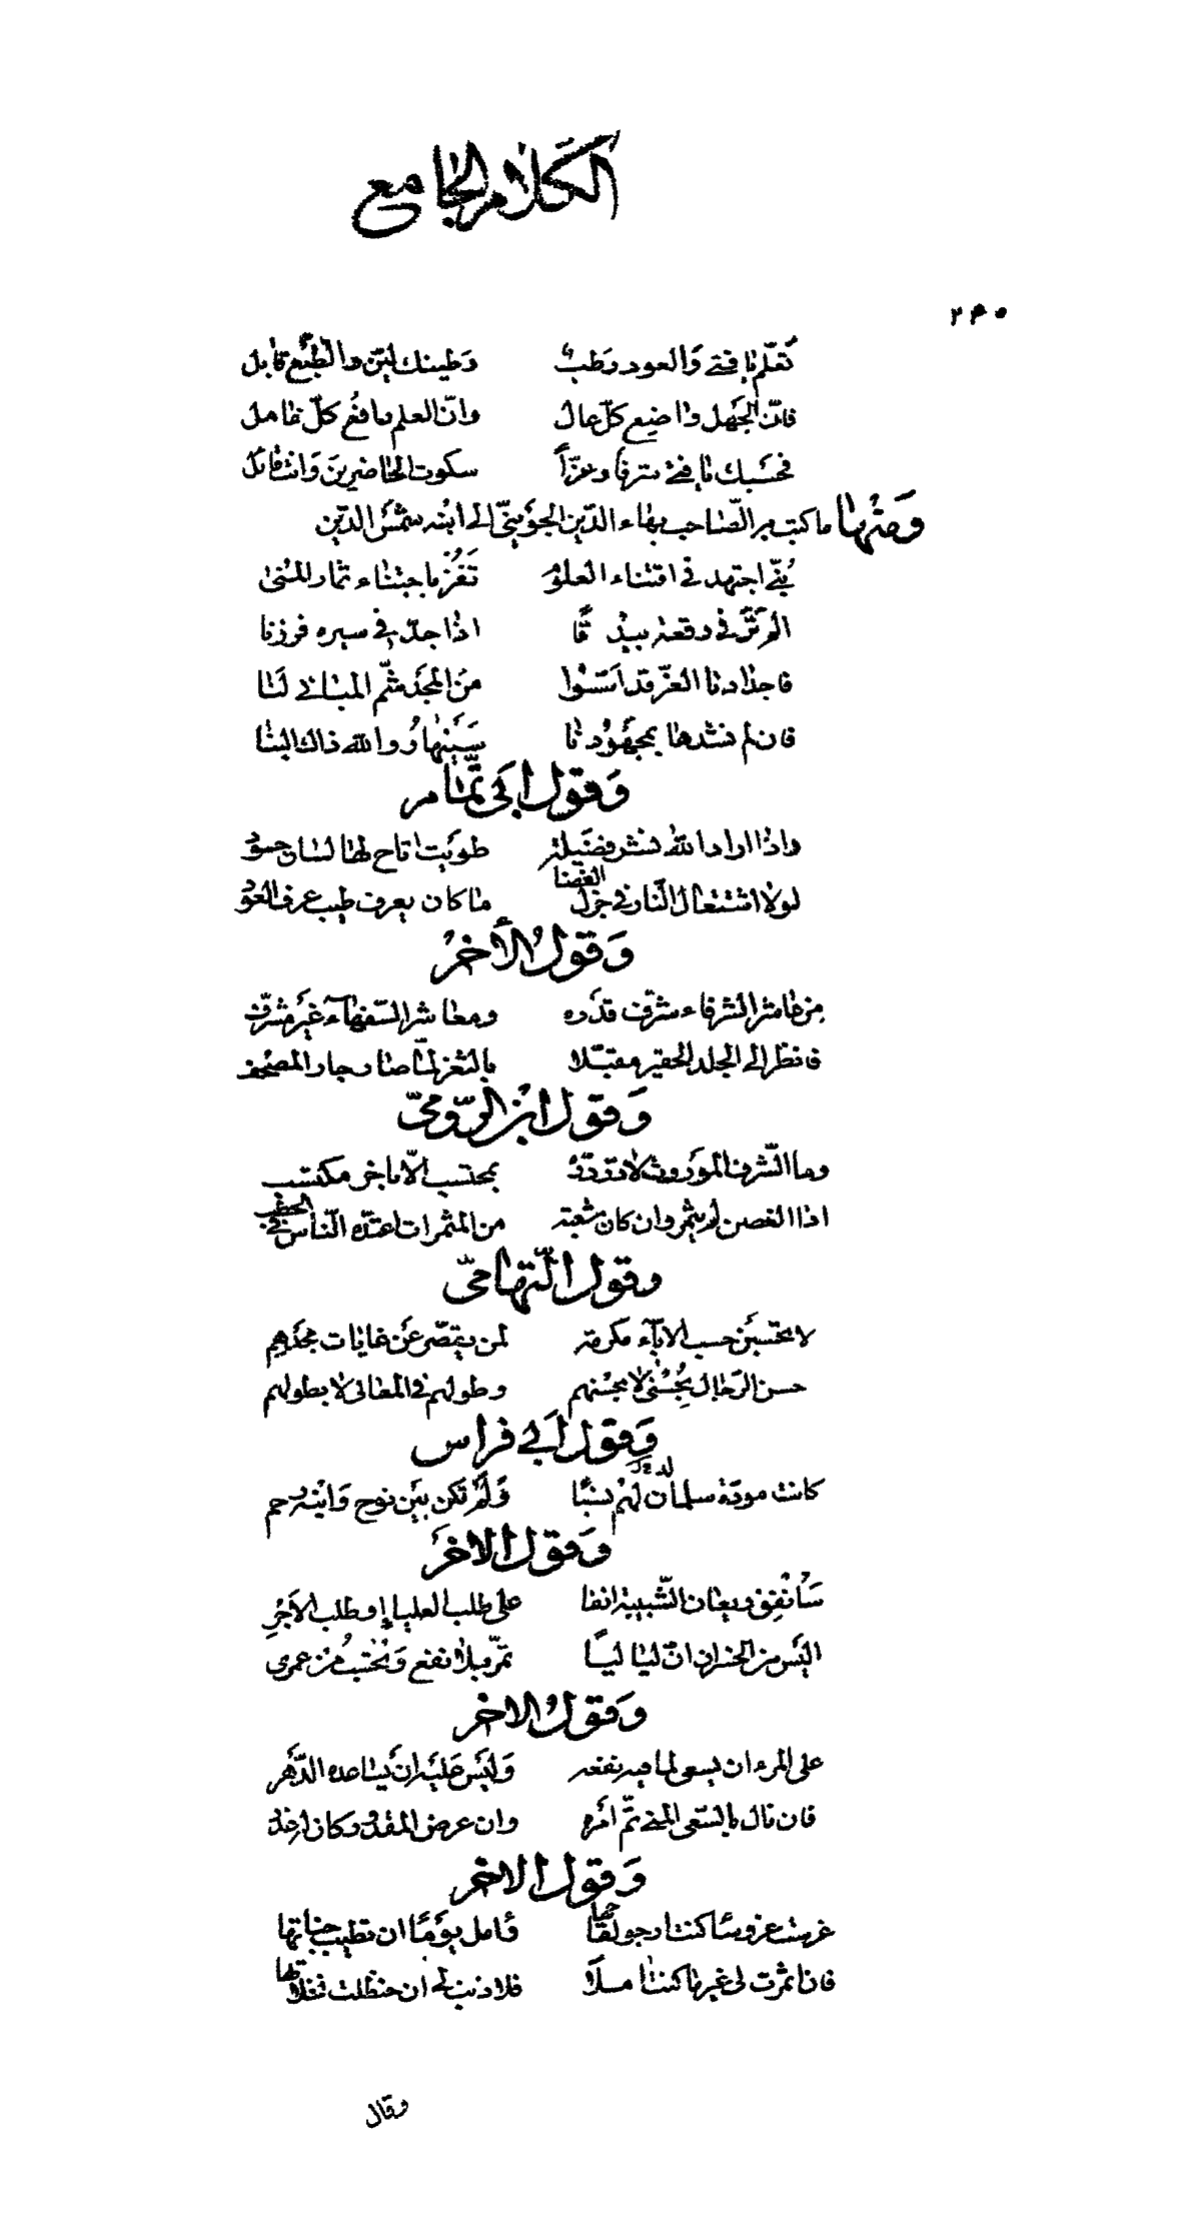 الكلام الجامع
٢٤٠
تعلّم يا فتى والعود رطب وطينك ليّن والطبع قابل
فانّ الجهل واضع كلّ عال وانّ العلم رافع كلّ خامل
فحسبك يا فتى شرفا وعزّاً سكوت الحاضرين وانت قائل
ومنها ما كتب به الصّاحب بهاء الدّين الجوينيّ الى ابنه شمس الدين
بُنَيّ اجتهد في اقتناء العلوم تفز باجتناء ثمار المنى
الم تر في رقعة بيذقًا اذا جدّ في سيره فرزنا
فاجدادنا الغرّ قد اسّسوا من المجد شمّ المباني لنا
فان لم نشدها بمجهودنا سينهار والله ذاك البنا
وقول ابي تمّام
واذا اراد الله نشر فضيلة طويت اتاح لها لسان حسود
لولا اشتعال النّار في جزل الغضا ما كان يعرف طيب عرف العود
وقول الآخر
من عاشر الشرفاء شرّف قدره ومعاشر السّفهاء غير مشرّف
فانظر الى الجلد الحقير مقبّلا بالثغر لمّا صار جار المصحف
وقول ابن الرّوميّ
وما الشّرف الموروث لا درّ درّه بمحتسب الّا بآخر مكتسب
اذا الغصن لم يثمر وان كان شعبة من المثمرات اعتدّه النّاس في الحطب
وقول التّهاميّ
لا تحسبن حسب الاباء مكرمة لمن يقصّر عن غايات مجدهم
حسن الرّجال بحسنى لا بحسنهم وطولهم في المعالى لا بطولهم
وقول ابي فراس
كانت مودّة سلمان لهم نسبًا ولم تكن بين نوح وابنه رحم
وقول الاخر
سأنفق ريعان الشّبيبة انفا على طلب العلياء او طلب الاجر
اليس من الخسران انّ لياليًا تمرّ بلا نفع وتحسب من عمري
وقول الاخر
على المرء ان يسعى لما فيه نفعه وليس عليه ان يساعده الدّهر
فان نال بالسّعى المنى تمّ امره وان عرض المقدور كان له عذر
وقول الاخر
غرست غروسًا كنت ارجو لقاحها وآمل يومًا ان تطيب جناتها
فان اثمرت لى غير ما كنت آملًا فلا ذنب لى ان حنظلت نخلاتها
وقال